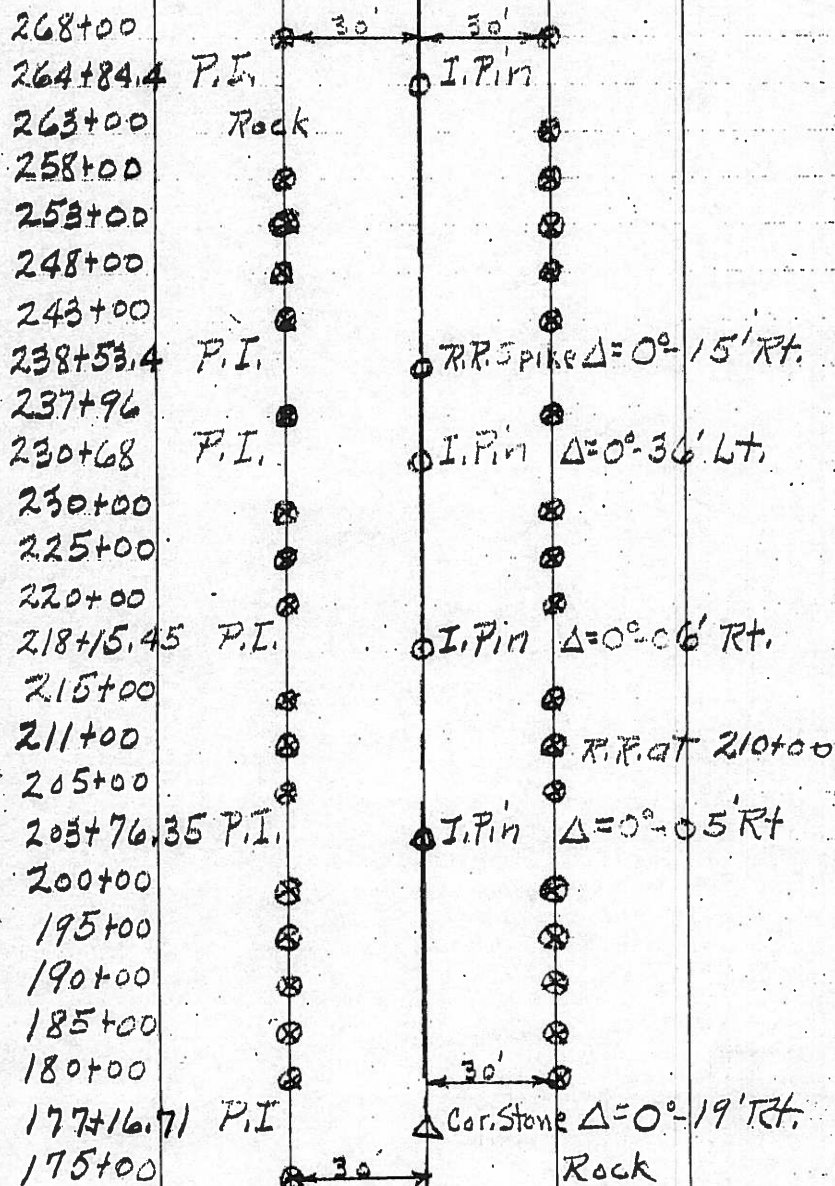 268+00 30' 30'
264+84.4 P.I. I.Pin
263+00 Rock
258+00
253+00
248+00
243+00
238+53.4 P.I. R.R.Spike Δ=0°-15' Rt.
237+96
230+68 P.I. I.Pin Δ=0°-36' Lt.
230+00
225+00
220+00
218+15.45 P.I. I.Pin Δ=0°-06' Rt.
215+00
211+00 R.R. at 210+00
205+00
203+76.35 P.I. I.Pin Δ=0°-05' Rt
200+00
195+00
190+00
185+00
180+00 30'
177+16.71 P.I Cor.Stone Δ=0°-19' Rt.
175+00 30' Rock